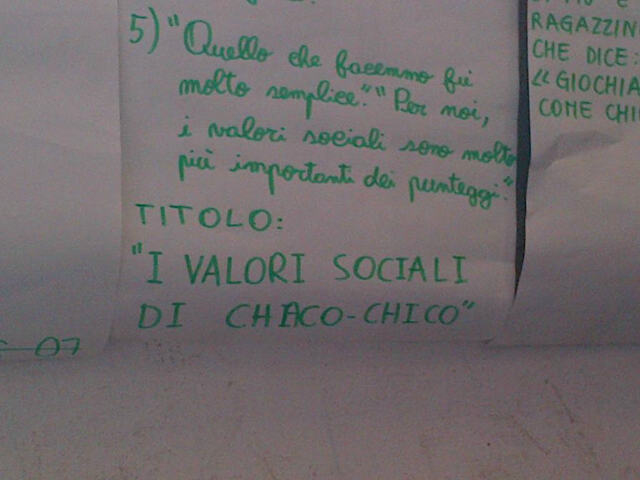 5) "Quello che facemmo fu
molto semplice." "Per noi,
i valori sociali sono molto
più importanti dei punteggi."
TITOLO:
"I VALORI SOCIALI
DI CHACO-CHICO"
07
RAGAZZIN
CHE DICE:
"GIOCHIA
COME CHI